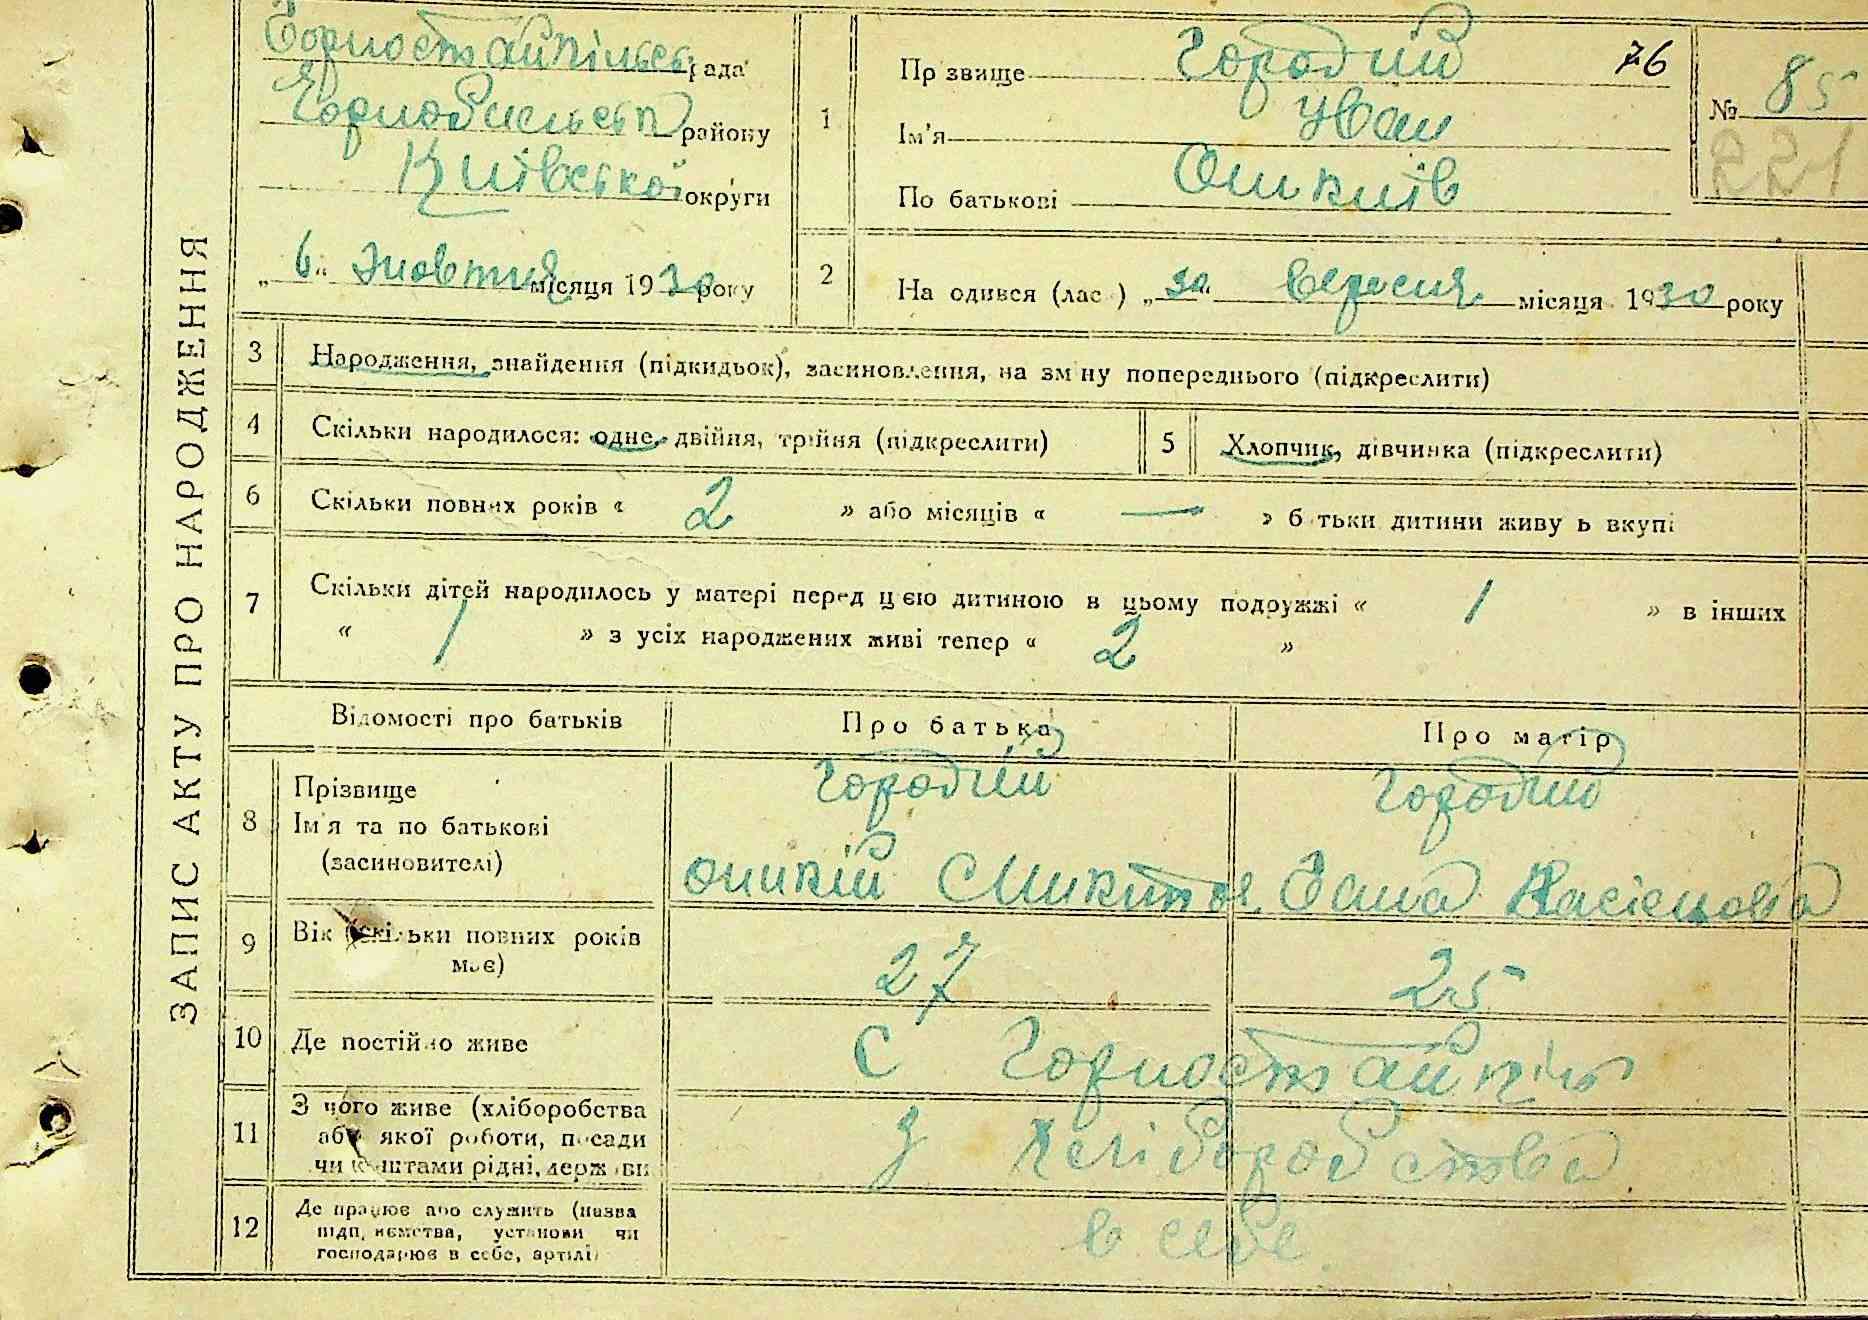 ЗАПИС АКТУ ПРО НАРОДЖЕННЯ
Горностайпільськ рада
Чорнобильськ району
Київської округи
„6“ Жовтня місяця 1930 року
1
Прізвище Городній 76
Ім'я Иван
По батькові Оникиїв
№ 85
221
2
На одився (лас ) „30“ вересня місяця 1930 року
3 Народження, знайдення (підкидьок), засиновлення, на зм ну попереднього (підкреслити)
4 Скільки народилося: одне, двійня, трійня (підкреслити) 5 Хлопчик, дівчинка (підкреслити)
6 Скільки повних років « 2 » або місяців « — » б тьки дитини живу ь вкупі
7 Скільки дітей народилось у матері перед цією дитиною в цьому подружжі « 1 » в інших
« 1 » з усіх народжених живі тепер « 2 »
Відомості про батьків Про батька Про матір
8 Прізвище
Ім'я та по батькові
(засиновителі)
Городній Городня
Оникій Микитов Ганна
9 Вік (скільки повних років має) 27 25
10 Де постійно живе С Горностайпіль
11 З чого живе (хліборобства
або якої роботи, посади
чи коштами рідні, держави
З хліборобства
12 Де працює або служить (назва
підприємства, установи чи
господарює в себе, артілі
в себе